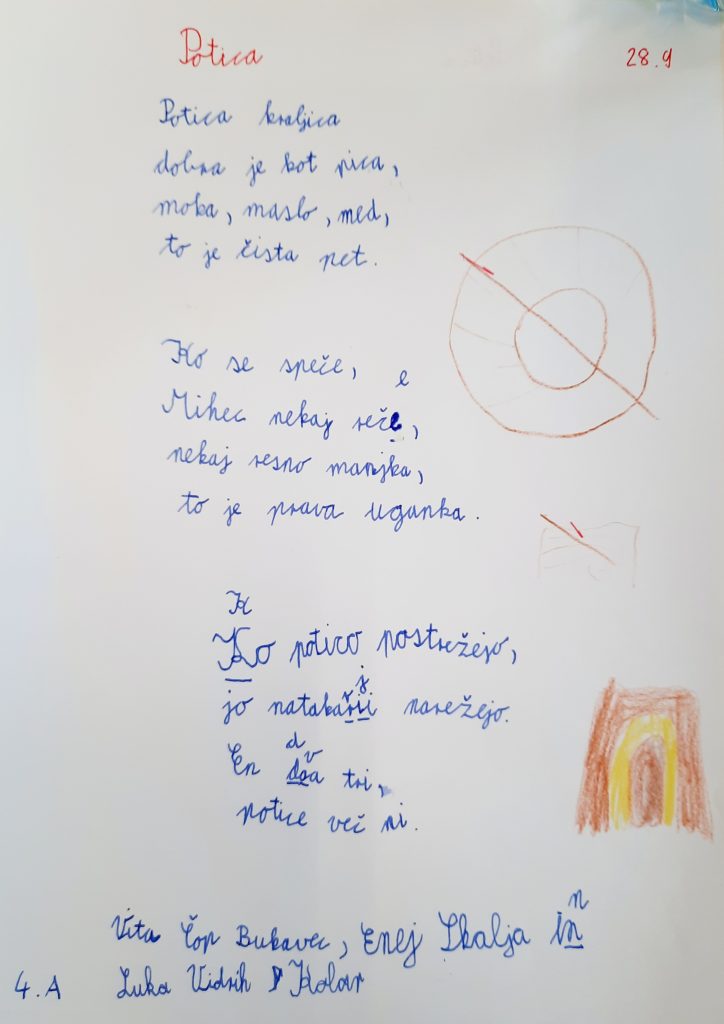 Potica
28.9
Potica kraljica
dobra je kot pica,
moka, maslo, med,
to je čista pet.
Ko se speče,
e
Mihec nekaj reče,
nekaj resno manjka,
to je prava uganka.
K
Ko potico postrežejo,
j
jo natakarji narežejo.
d v
En dva tri,
potice več ni.
n
Vita Čop Bukavec, Enej Skalja in
4.A Luka Vidrih Kolar